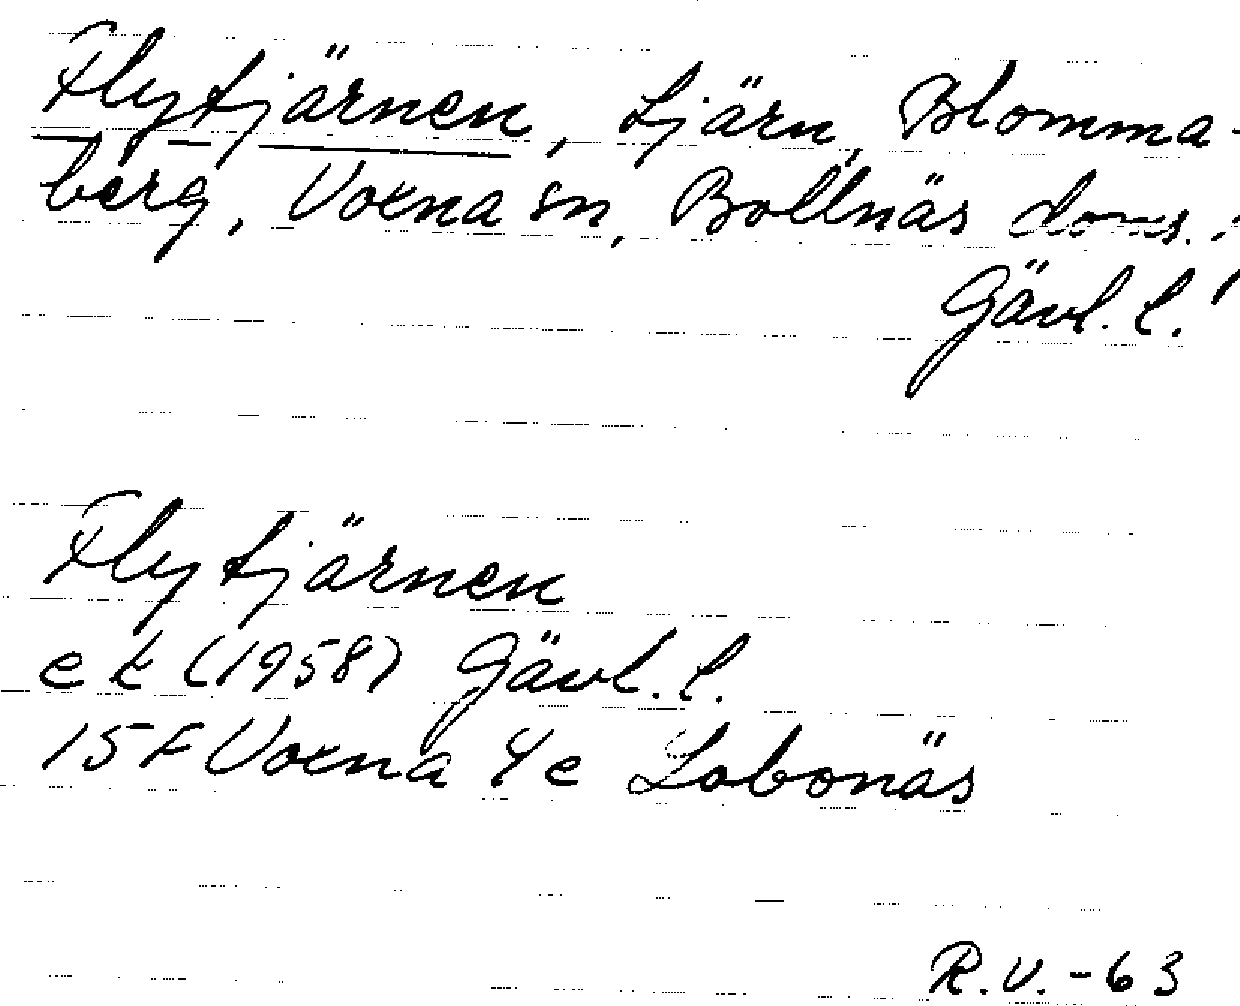 Flytjärnen, tjärn, Blomma-
berg, Voxna sn, Bollnäs doms.,
Gävl. l.
Flytjärnen
e k (1958) Gävl. l.
15F Voxna 4e Lobonäs
R.V.-63